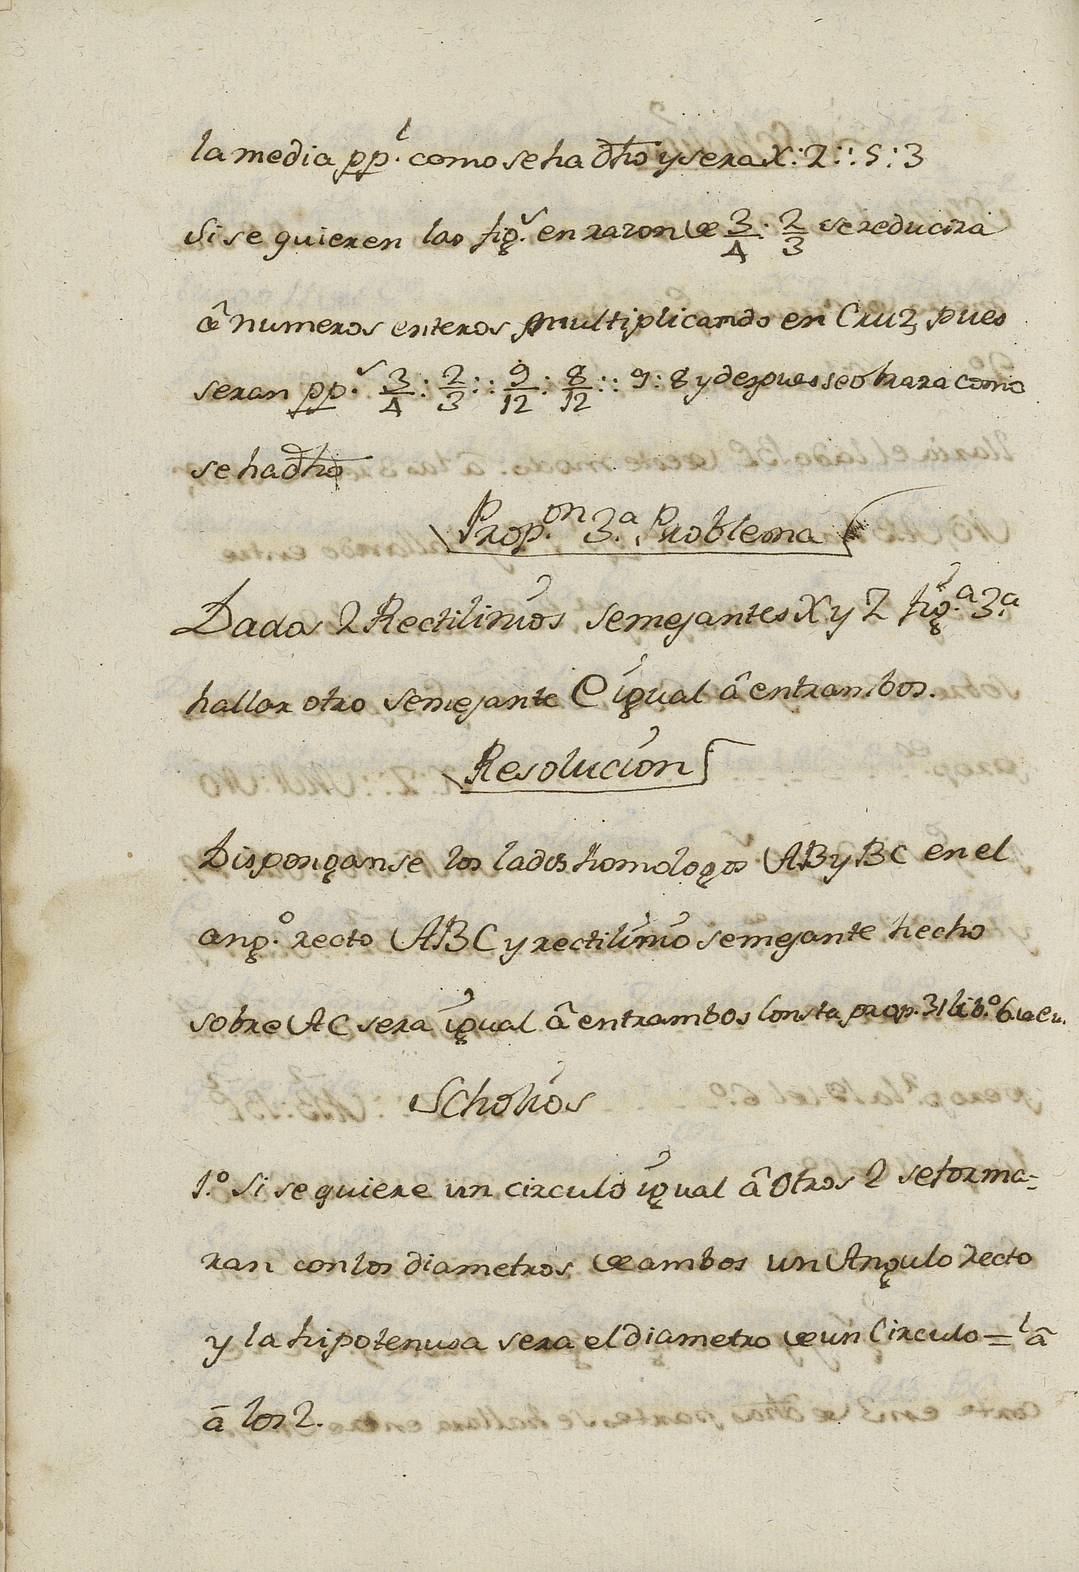 la media pp.l como se ha dho y sera X : 2 :: 5 : 3
Si se quieren las fig.s en razon de 3/4 : 2/3 se reducira
â numeros enteros multiplicando en Cruz, pues
seran pp.s 3/4 : 2/3 :: 9/12 : 8/12 :: 9 : 8 y despues se obrara como
se ha dho
Prop.on 3.a Problema
Dados 2 Rectilinios semejantes X y Z fig.a 3.a
hallar otro semejante C igual â entrambos.
Resolucion
Disponganse los lados homologos AB y BC en el
ang.o recto ABC y rectilinio semejante hecho
sobre AC sera igual â entrambos Consta prop. 31 lib.o 6 de Eu.
Scholios
1.o Si se quiere un circulo igual â Otros 2 se forma=
ran con los diametros de ambos un Angulo recto
y la hipotenusa sera el diametro de un Circulo =l â
â los 2.